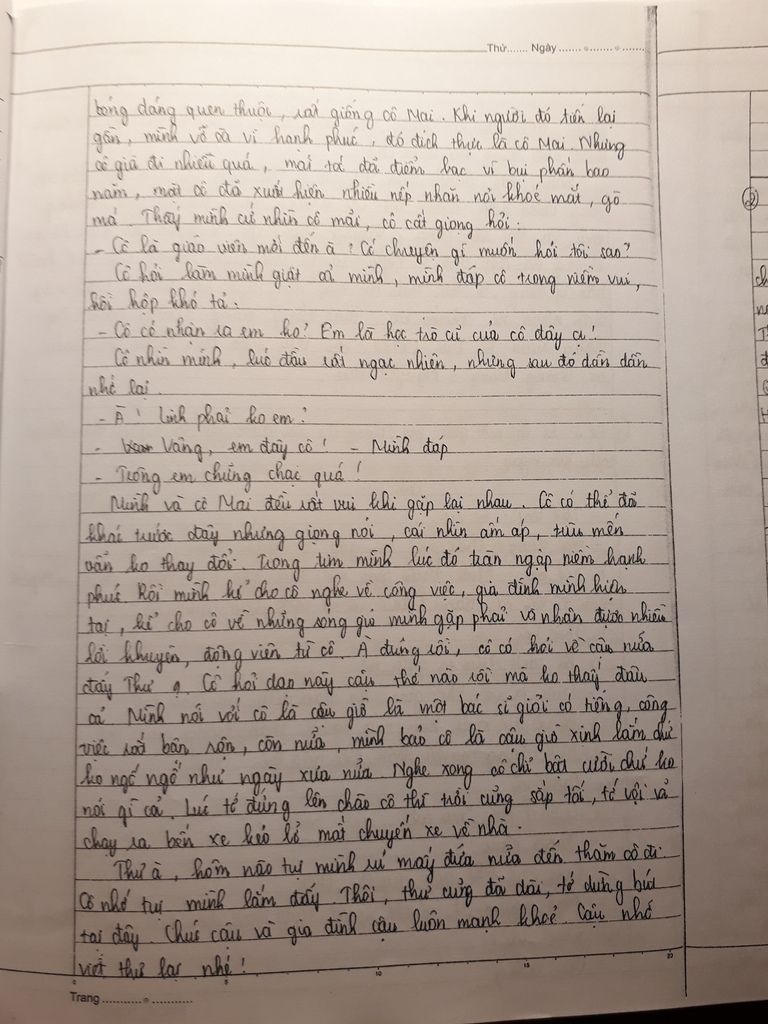 Thứ....... Ngày........................
bóng dáng quen thuộc, rất giống cô Mai. Khi người đó tiến lại
gần, mình vỡ oà vì hạnh phúc, đó đích thực là cô Mai. Nhưng
cô già đi nhiều quá, mái tóc đã điểm bạc vì bụi phấn bao
năm, mắt cô đã xuất hiện nhiều nếp nhăn nơi khoé mắt, gò
má. Thấy mình cứ nhìn cô mãi, cô cất giọng hỏi:
- Cô là giáo viên mới đến à? Có chuyện gì muốn hỏi tôi sao?
Cô hỏi làm mình giật cả mình, mình đáp cô trong niềm vui,
hồi hộp khó tả.
- Cô có nhận ra em ko? Em là học trò cũ của cô đây ạ!
Cô nhìn mình, lúc đầu rất ngạc nhiên, nhưng sau đó dần dần
nhớ lại.
- À! Linh phải ko em?
- Vâng, em đây cô! - Mình đáp
- Trông em chững chạc quá!
Mình và cô Mai đều rất vui khi gặp lại nhau. Cô có thể đã
khác trước đây nhưng giọng nói, cái nhìn ấm áp, trìu mến
vẫn ko thay đổi. Trong tim mình lúc đó tràn ngập niềm hạnh
phúc. Rồi mình kể cho cô nghe về công việc, gia đình mình hiện
tại, kể cho cô về những sóng gió mình gặp phải và nhận được nhiều
lời khuyên, động viên từ cô. À đúng rồi, cô có hỏi về cậu nữa
đấy Thư ạ. Cô hỏi dạo này cậu thế nào rồi mà ko thấy đâu
cả. Mình nói với cô là cậu giờ là một bác sĩ giỏi có tiếng, công
việc rất bận rộn, còn nữa, mình bảo cô là cậu giờ xinh lắm chứ
ko ngố ngố như ngày xưa nữa. Nghe xong cô chỉ bật cười chứ ko
nói gì cả. Lúc tớ đứng lên chào cô thì trời cũng sắp tối, tớ vội vã
chạy ra bến xe kẻo lỡ mất chuyến xe về nhà.
Thư à, hôm nào tụi mình rủ mấy đứa nữa đến thăm cô đi.
Cô nhớ tụi mình lắm đấy. Thôi, thư cũng đã dài, tớ dừng bút
tại đây. Chúc cậu và gia đình cậu luôn mạnh khoẻ. Cậu nhớ
viết thư lại nhé!
0 5 10 15 20
Trang....................